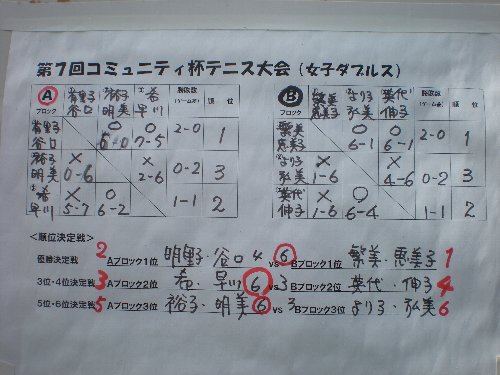 第7回コミュニティ杯テニス大会（女子ダブルス）
A 裕子 希 勝敗数 順位
ブロック 谷口 明美 早川 (ゲーム差)
○ ○ 2-0 1
谷口 6-0 7-5
裕子 × × 0-2 3
明美 0-6 2-6
希 × ○ 1-1 2
早川 5-7 6-2
B 繁美 より子 英代 勝敗数 順位
ブロック 恵美子 弘美 伸子 (ゲーム差)
繁美 ○ ○ 2-0 1
恵美子 6-1 6-1
より子 × × 0-2 3
弘美 1-6 4-6
英代 × ○ 1-1 2
伸子 1-6 6-4
＜順位決定戦＞
優勝決定戦 2 Aブロック1位 明野・谷口 4 vs 6 Bブロック1位 繁美・恵美子 1
3位・4位決定戦 3 Aブロック2位 希・早川 6 vs 3 Bブロック2位 英代・伸子 4
5位・6位決定戦 5 Aブロック3位 裕子・明美 6 vs 3 Bブロック3位 より子・弘美 6